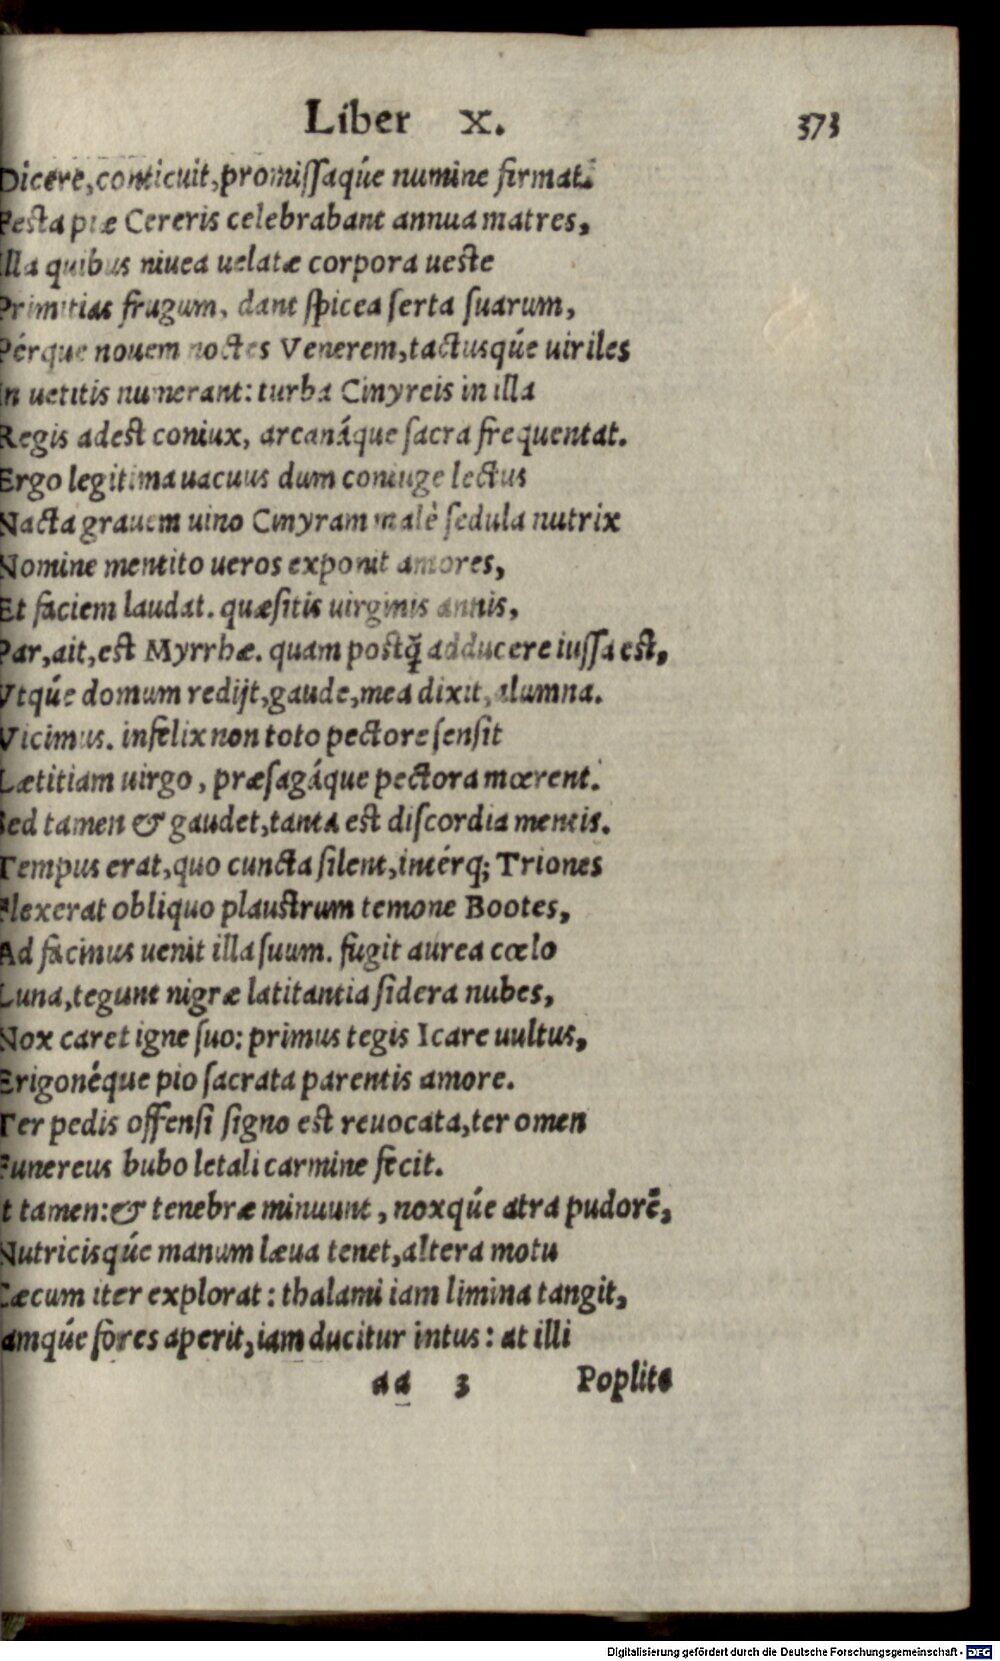 Liber X. 373
Dicere, conticuit, promissaqúe numine firmat.
Festa piæ Cereris celebrabant annua matres,
Illa quibus niuea uelatæ corpora ueste
Primitias frugum, dant spicea serta suarum,
Pérque nouem noctes Venerem, tactusqúe uiriles
In uetitis numerant: turba Cinyreis in illa
Regis adest coniux, arcanáque sacra frequentat.
Ergo legitima uacuus dum coniuge lectus
Nacta grauem uino Cinyram malè sedula nutrix
Nomine mentito ueros exponit amores,
Et faciem laudat. quæsitis uirginis annis,
Par, ait, est Myrrhæ. quam postq̃ adducere iussa est,
Vtqúe domum redijt, gaude, mea dixit, alumna.
Vicimus. infelix non toto pectore sensit
Lætitiam uirgo, præsagáque pectora mœrent.
Sed tamen & gaudet, tanta est discordia mentis.
Tempus erat, quo cuncta silent, intérq; Triones
Flexerat obliquo plaustrum temone Bootes,
Ad facinus uenit illa suum. fugit aurea cœlo
Luna, tegunt nigræ latitantia sidera nubes,
Nox caret igne suo: primus tegis Icare uultus,
Erigonéque pio sacrata parentis amore.
Ter pedis offensi signo est reuocata, ter omen
Funereus bubo letali carmine fecit.
It tamen: & tenebræ minuunt, noxqúe atra pudorẽ,
Nutricisqúe manum læua tenet, altera motu
Cæcum iter explorat: thalami iam limina tangit,
Iamqúe fores aperit, iam ducitur intus: at illi
aa 3 Poplite
Digitalisierung gefördert durch die Deutsche Forschungsgemeinschaft - DFG